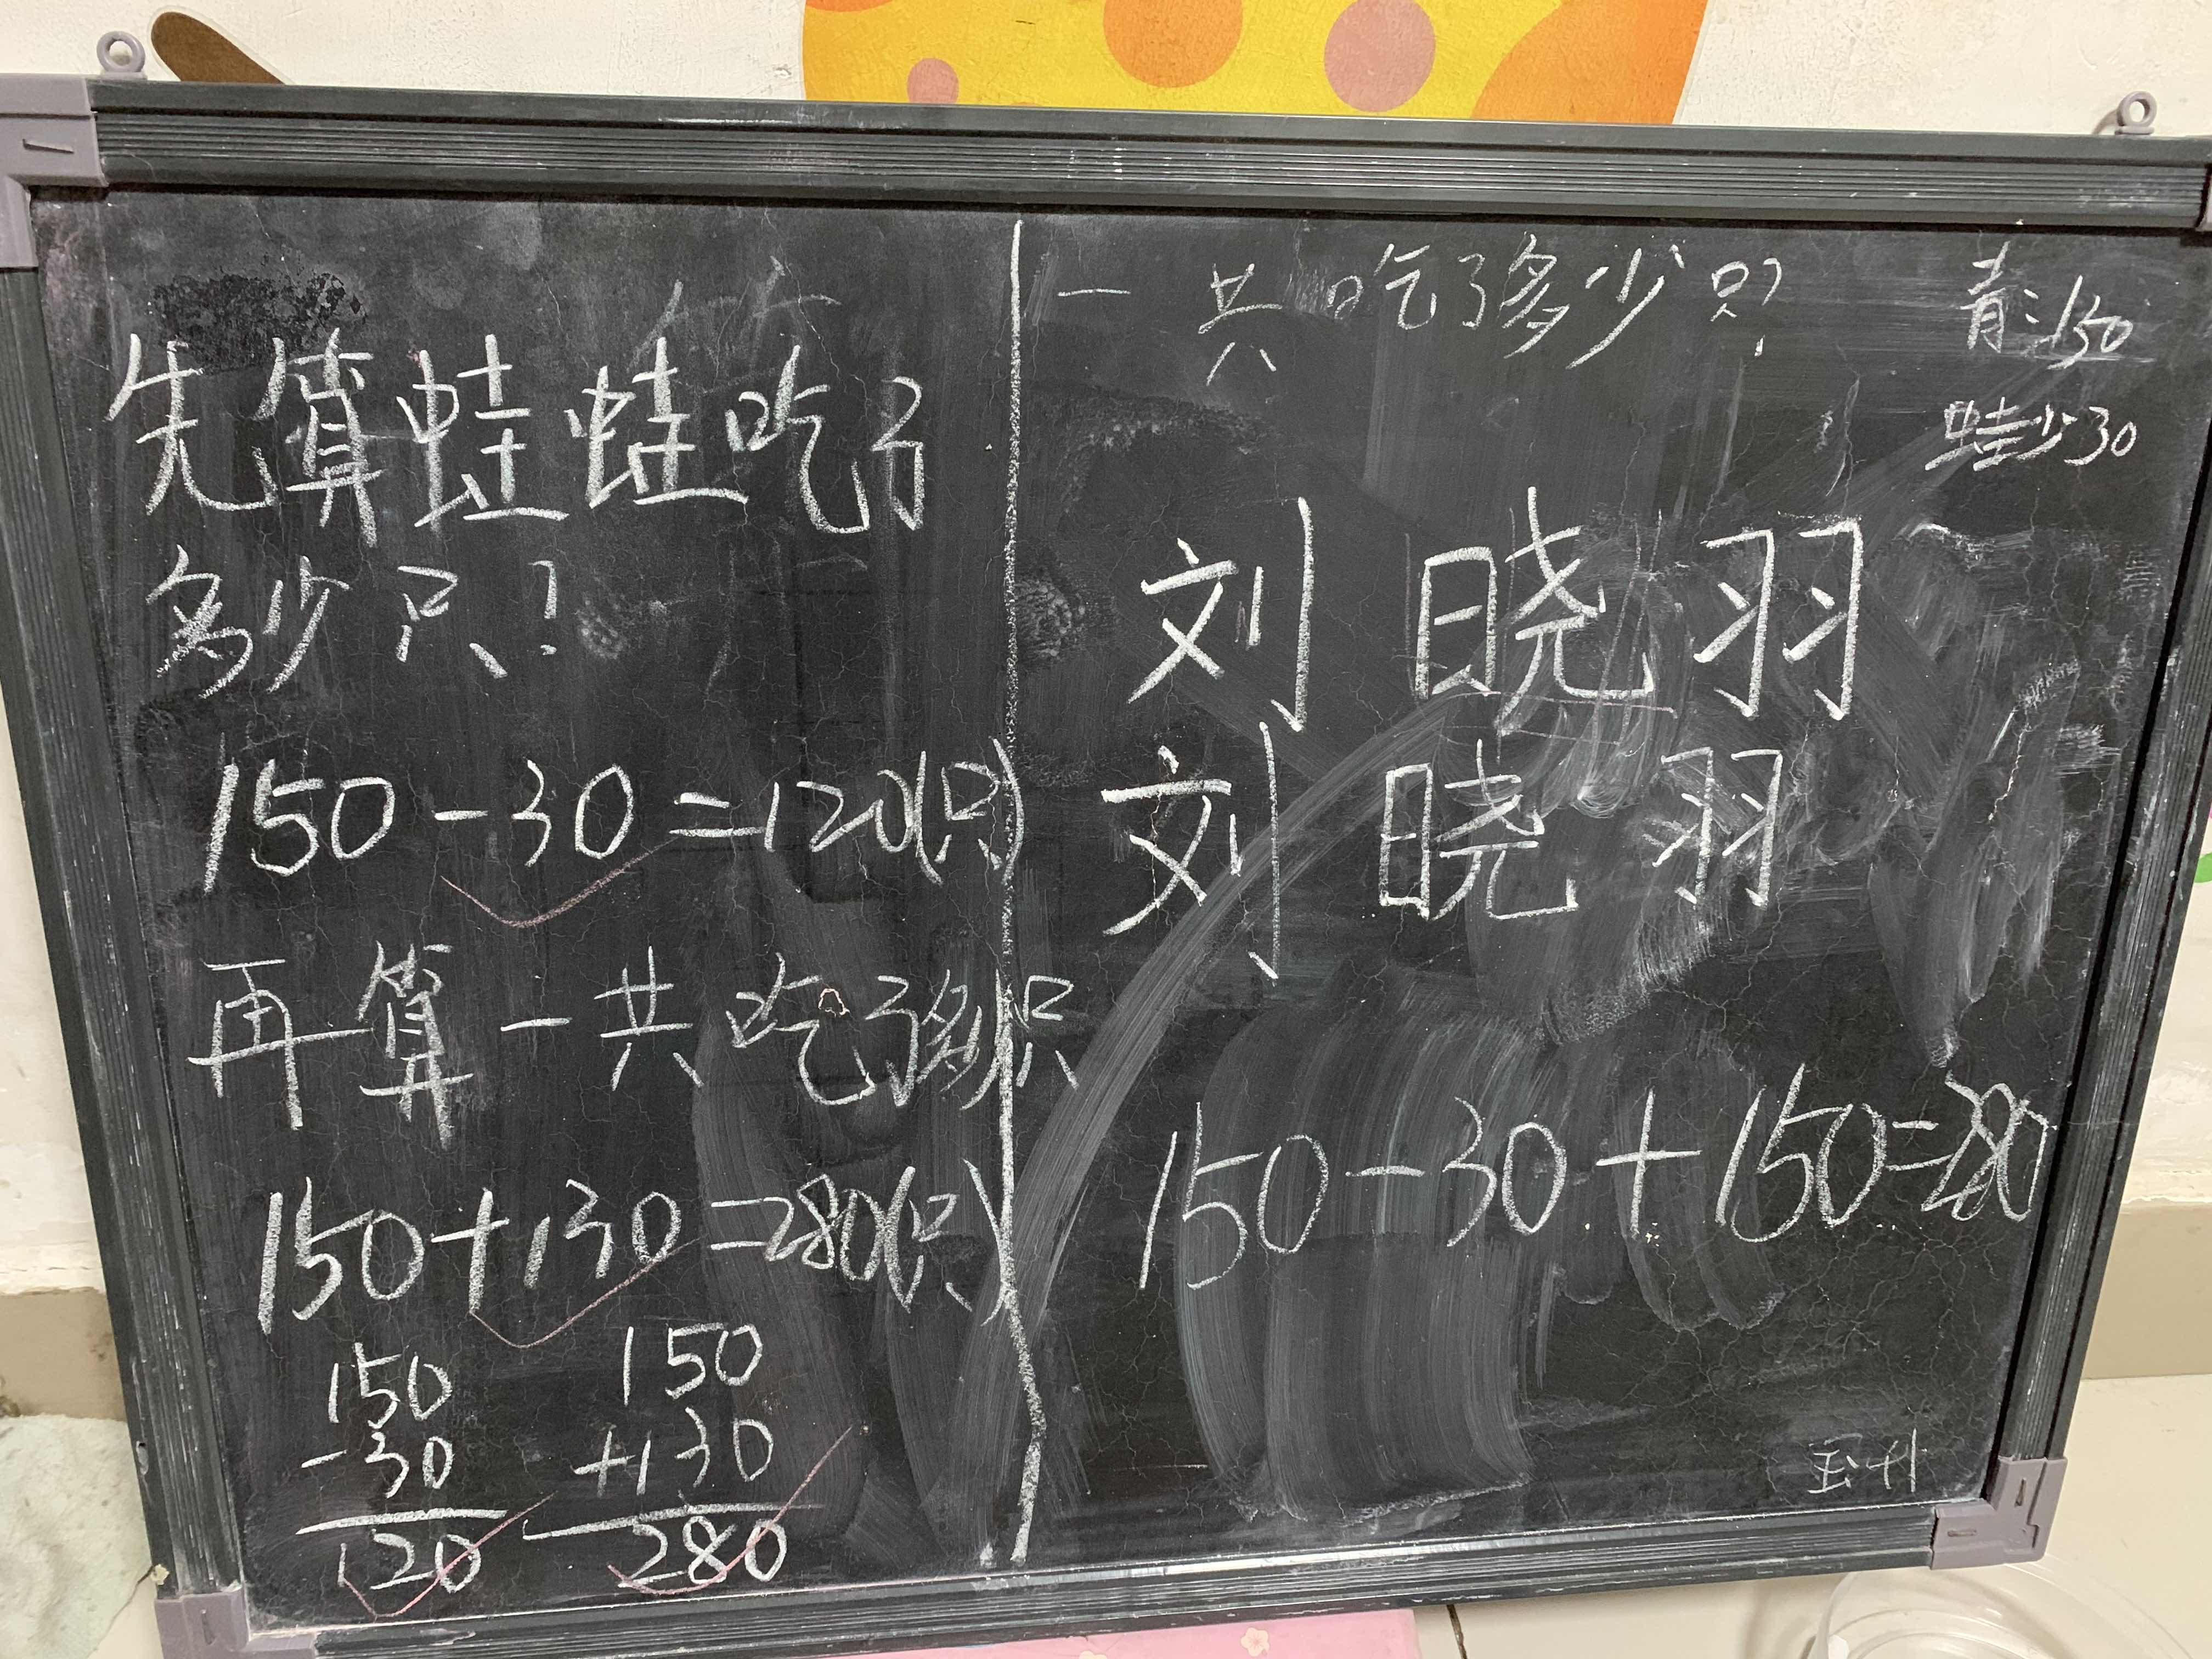 先算蛙蛙吃了
多少只?
150-30=120(只)
再算一共吃了多少只
150+130=280(只)
150
-30
120
150
+130
280
一共吃了多少只?
青:150
蛙少30
刘晓羽
刘晓羽
150-30+150=280